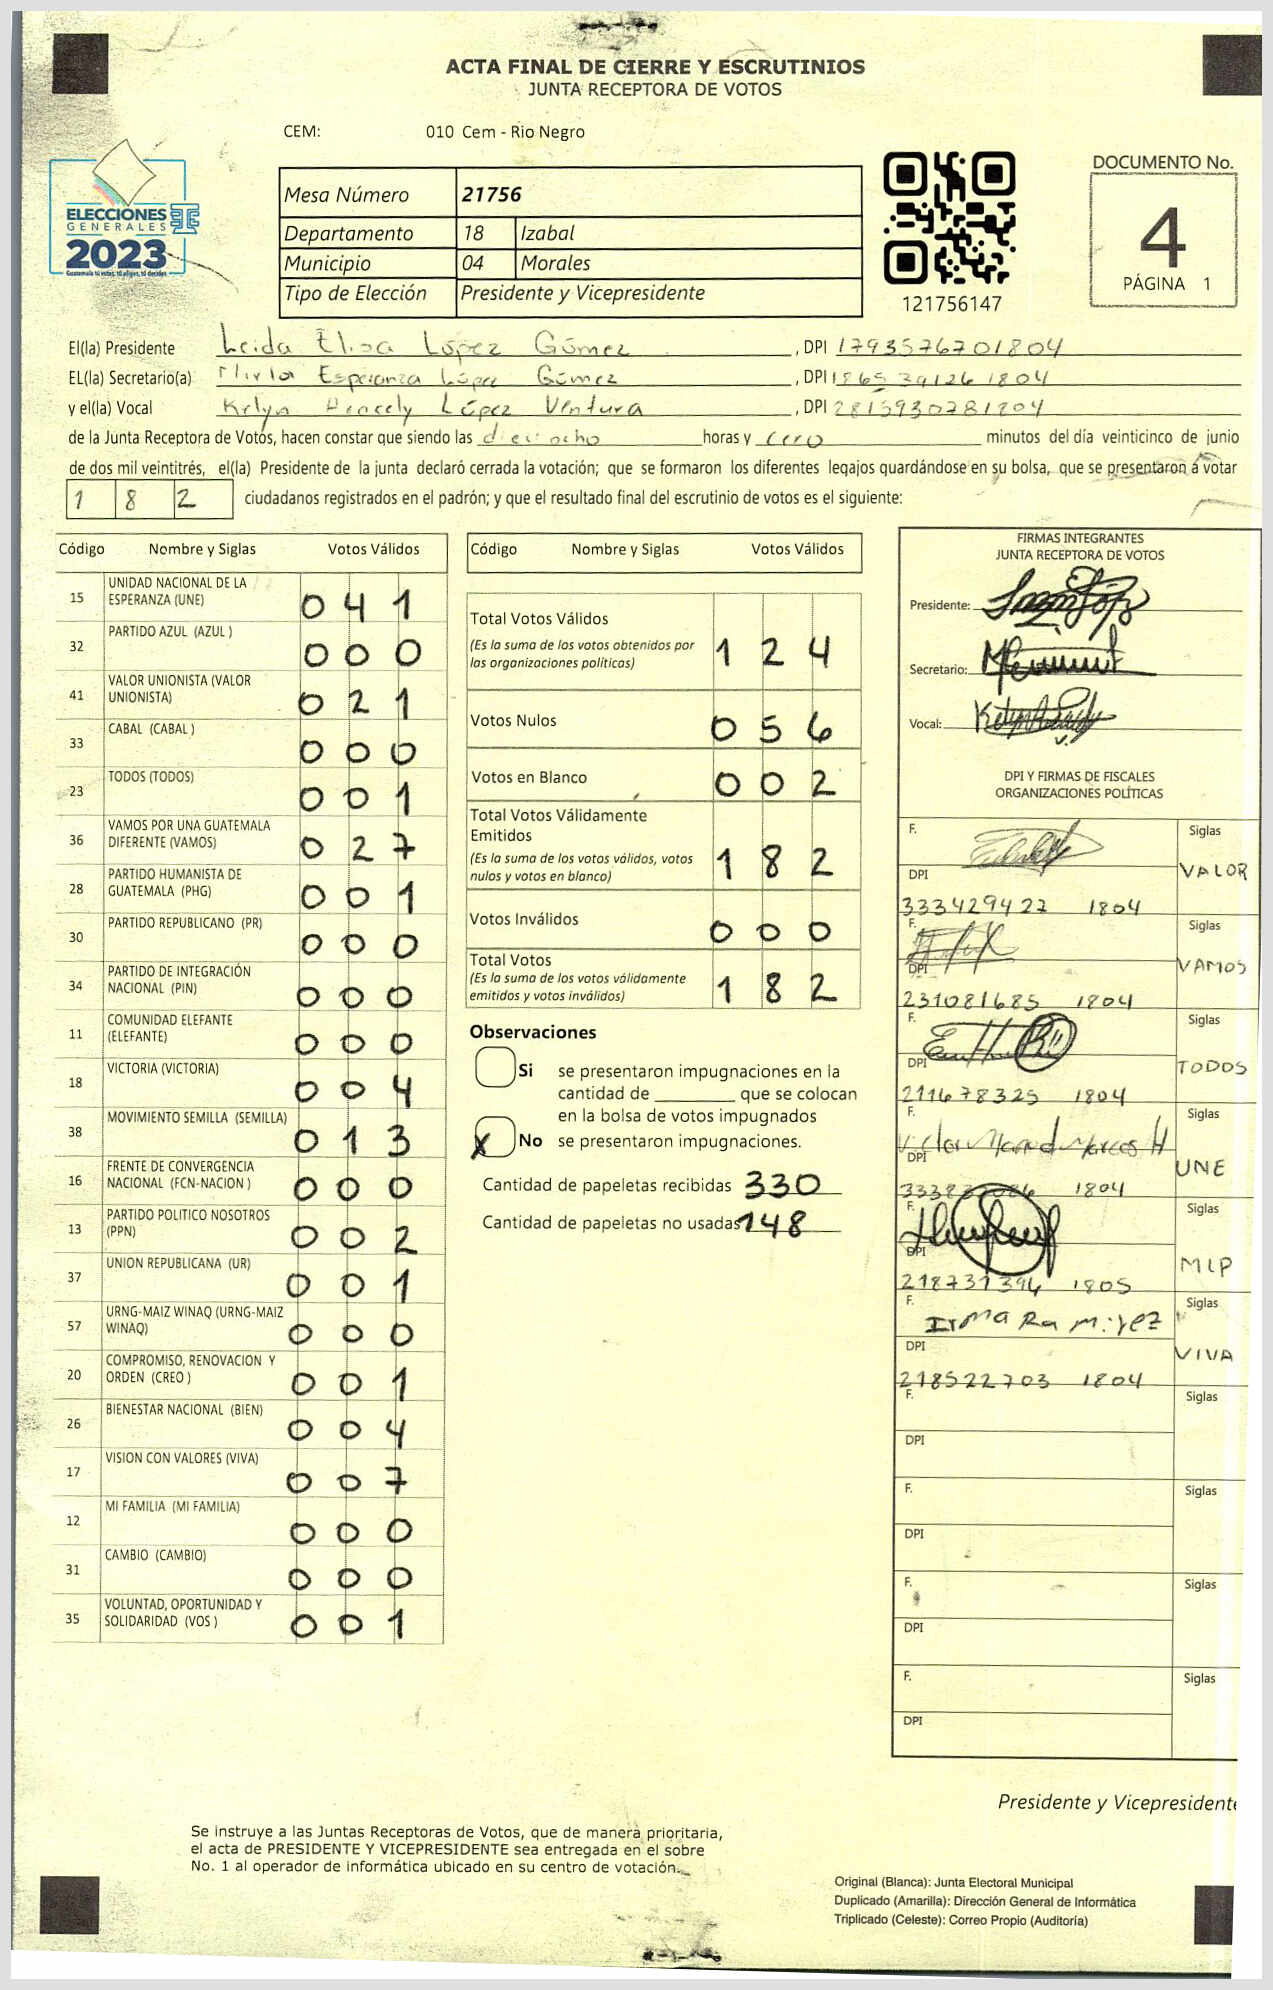 ACTA FINAL DE CIERRE Y ESCRUTINIOS
JUNTA RECEPTORA DE VOTOS
CEM: 010 Cem - Rio Negro
ELECCIONES
GENERALES
2023
Guatemala tú votas, tú eliges, tú decides
Mesa Número 21756
Departamento 18 Izabal
Municipio 04 Morales
Tipo de Elección Presidente y Vicepresidente
121756147
DOCUMENTO No.
4
PÁGINA 1
El(la) Presidente Leida Elisa López Gómez , DPI 1793576701804
EL(la) Secretario(a) Mirla Esperanza López Gómez , DPI 1865391261804
y el(la) Vocal Kelyn Aracely López Ventura , DPI 2815930781804
de la Junta Receptora de Votos, hacen constar que siendo las dieciocho horas y cero minutos del día veinticinco de junio
de dos mil veintitrés, el(la) Presidente de la junta declaró cerrada la votación; que se formaron los diferentes legajos guardándose en su bolsa, que se presentaron a votar
1 8 2 ciudadanos registrados en el padrón; y que el resultado final del escrutinio de votos es el siguiente:
Código Nombre y Siglas Votos Válidos
15 UNIDAD NACIONAL DE LA
ESPERANZA (UNE) 0 4 1
32 PARTIDO AZUL (AZUL ) 0 0 0
41 VALOR UNIONISTA (VALOR
UNIONISTA) 0 2 1
33 CABAL (CABAL ) 0 0 0
23 TODOS (TODOS) 0 0 1
36 VAMOS POR UNA GUATEMALA
DIFERENTE (VAMOS) 0 2 7
28 PARTIDO HUMANISTA DE
GUATEMALA (PHG) 0 0 1
30 PARTIDO REPUBLICANO (PR) 0 0 0
34 PARTIDO DE INTEGRACIÓN
NACIONAL (PIN) 0 0 0
11 COMUNIDAD ELEFANTE
(ELEFANTE) 0 0 0
18 VICTORIA (VICTORIA) 0 0 4
38 MOVIMIENTO SEMILLA (SEMILLA) 0 1 3
16 FRENTE DE CONVERGENCIA
NACIONAL (FCN-NACION ) 0 0 0
13 PARTIDO POLITICO NOSOTROS
(PPN) 0 0 2
37 UNION REPUBLICANA (UR) 0 0 1
57 URNG-MAIZ WINAQ (URNG-MAIZ
WINAQ) 0 0 0
20 COMPROMISO, RENOVACION Y
ORDEN (CREO ) 0 0 1
26 BIENESTAR NACIONAL (BIEN) 0 0 4
17 VISION CON VALORES (VIVA) 0 0 7
12 MI FAMILIA (MI FAMILIA) 0 0 0
31 CAMBIO (CAMBIO) 0 0 0
35 VOLUNTAD, OPORTUNIDAD Y
SOLIDARIDAD (VOS ) 0 0 1
Código Nombre y Siglas Votos Válidos
Total Votos Válidos
(Es la suma de los votos obtenidos por
las organizaciones políticas) 1 2 4
Votos Nulos 0 5 6
Votos en Blanco 0 0 2
Total Votos Válidamente
Emitidos
(Es la suma de los votos válidos, votos
nulos y votos en blanco) 1 8 2
Votos Inválidos 0 0 0
Total Votos
(Es la suma de los votos válidamente
emitidos y votos inválidos) 1 8 2
Observaciones
Si se presentaron impugnaciones en la
cantidad de ________ que se colocan
en la bolsa de votos impugnados
X No se presentaron impugnaciones.
Cantidad de papeletas recibidas 330
Cantidad de papeletas no usadas 148
FIRMAS INTEGRANTES
JUNTA RECEPTORA DE VOTOS
Presidente:
Secretario:
Vocal:
DPI Y FIRMAS DE FISCALES
ORGANIZACIONES POLÍTICAS
F. Siglas
DPI VALOR
333429427 1804
F. Siglas
DPI VAMOS
231081685 1804
F. Siglas
DPI TODOS
211678325 1804
F. Siglas
DPI UNE
1804
F. Siglas
DPI MLP
218731394 1805
F. Irma Ramirez Siglas
DPI VIVA
218522703 1804
F. Siglas
DPI
F. Siglas
DPI
F. Siglas
DPI
F. Siglas
DPI
Presidente y Vicepresidente
Se instruye a las Juntas Receptoras de Votos, que de manera prioritaria,
el acta de PRESIDENTE Y VICEPRESIDENTE sea entregada en el sobre
No. 1 al operador de informática ubicado en su centro de votación.
Original (Blanca): Junta Electoral Municipal
Duplicado (Amarilla): Dirección General de Informática
Triplicado (Celeste): Correo Propio (Auditoría)